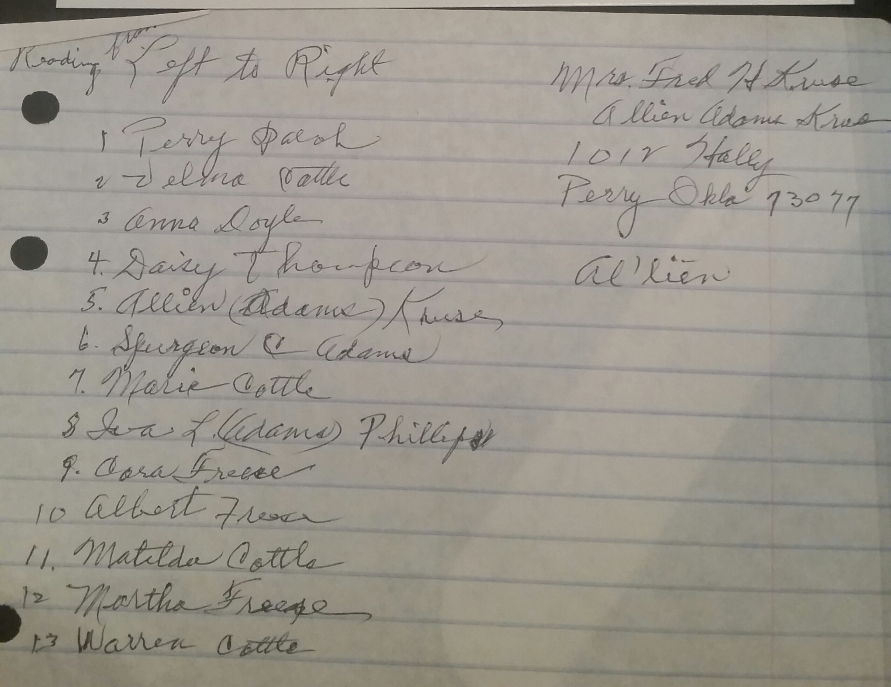 Reading from Left to Right
1 Perry
2 Velma Cottle
3 Anna Doyle
4. Daisy Thompson
5. Allien (Adams) Kruse
6. Spurgeon C Adams
7. Marie Cottle
8 Iva L. (Adams) Phillips
9. Cora Freese
10 Albert Freese
11. Matilda Cottle
12 Martha Freese
13 Warren Cottle
Mrs. Fred H Kruse
Allien Adams Kruse
1012 Holly
Perry Okla 73077
Al'lien